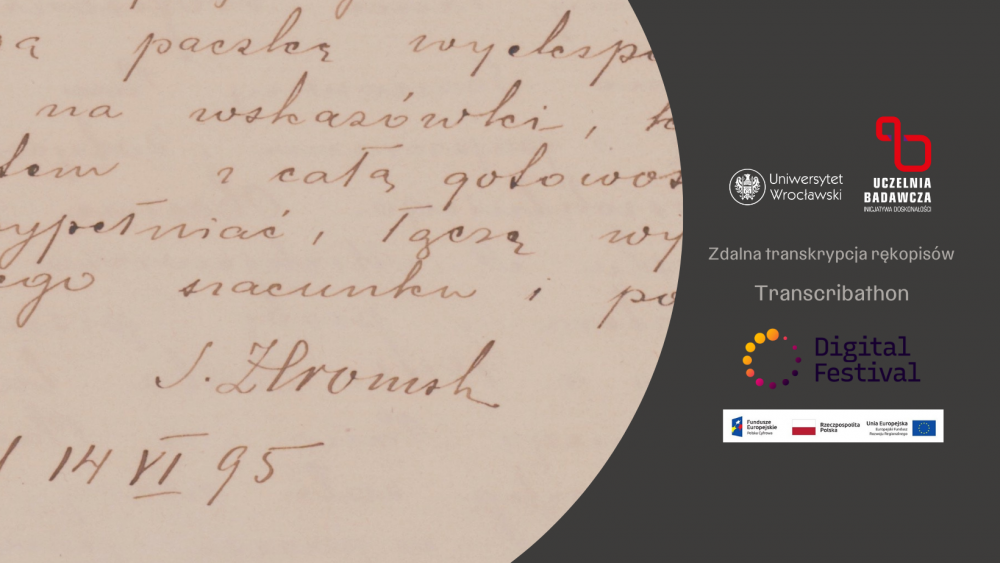 ą paczkę wyeksp
na wskazówki, k
tem z całą gotowoś
ypełniać, łączę wy
ego szacunku i po
14 VI 95
Uniwersytet
Wrocławski
UCZELNIA
BADAWCZA
INICJATYWA DOSKONAŁOŚCI
Zdalna transkrypcja rękopisów
Transcribathon
Digital
Festival
Fundusze
Europejskie
Polska Cyfrowa
Rzeczpospolita
Polska
Unia Europejska
Europejski Fundusz
Rozwoju Regionalnego